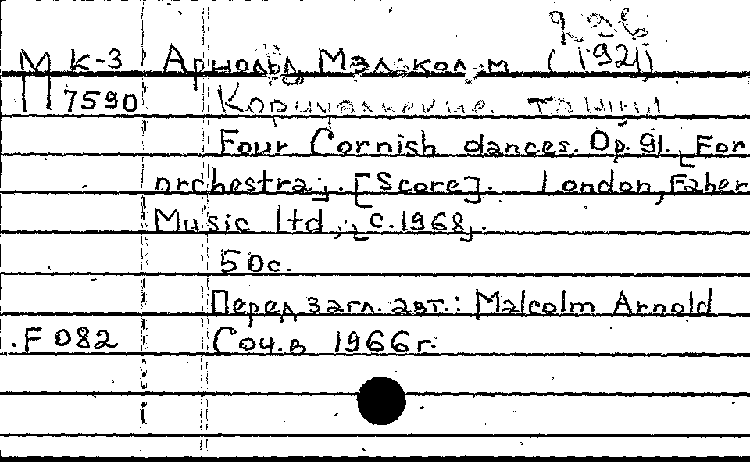 М К-3 Арнольд Малькольм (1921)
П 7590 Корнуэльские танцы
Four Cornish dances. Op. 91. [For
orchestra]. [Score]. London, Faber
Music ltd, [c. 1968].
50с.
Перед загл. авт.: Malcolm Arnold
.F 082 Соч.в 1966г.